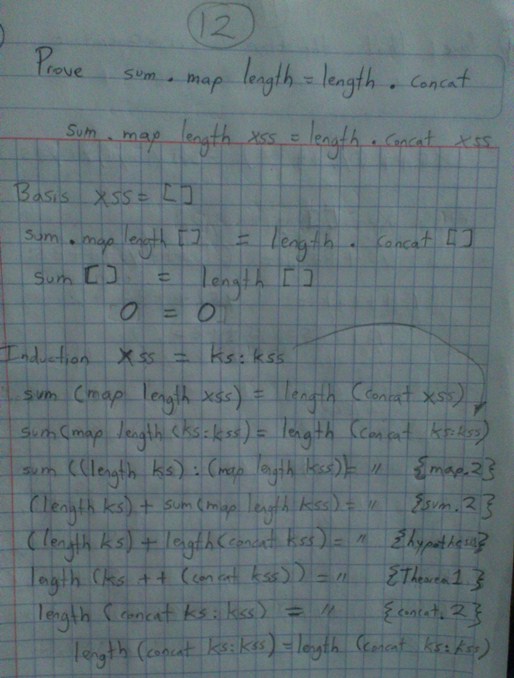 12
Prove sum . map length = length . concat
sum . map length xss = length . concat xss
Basis xss = []
sum . map length [] = length . concat []
sum [] = length []
0 = 0
Induction xss = ks:kss
sum (map length xss) = length (concat xss)
sum (map length (ks:kss) = length (concat ks:kss)
sum ((length ks) : (map length kss)) = " {map.2}
(length ks) + sum (map length kss) = " {sum.2}
(length ks) + length (concat kss) = " {hypothesis}
length (ks ++ (concat kss)) = " {Theorem 1.}
length (concat ks:kss) = " {concat.2}
length (concat ks:kss) = length (concat ks:kss)